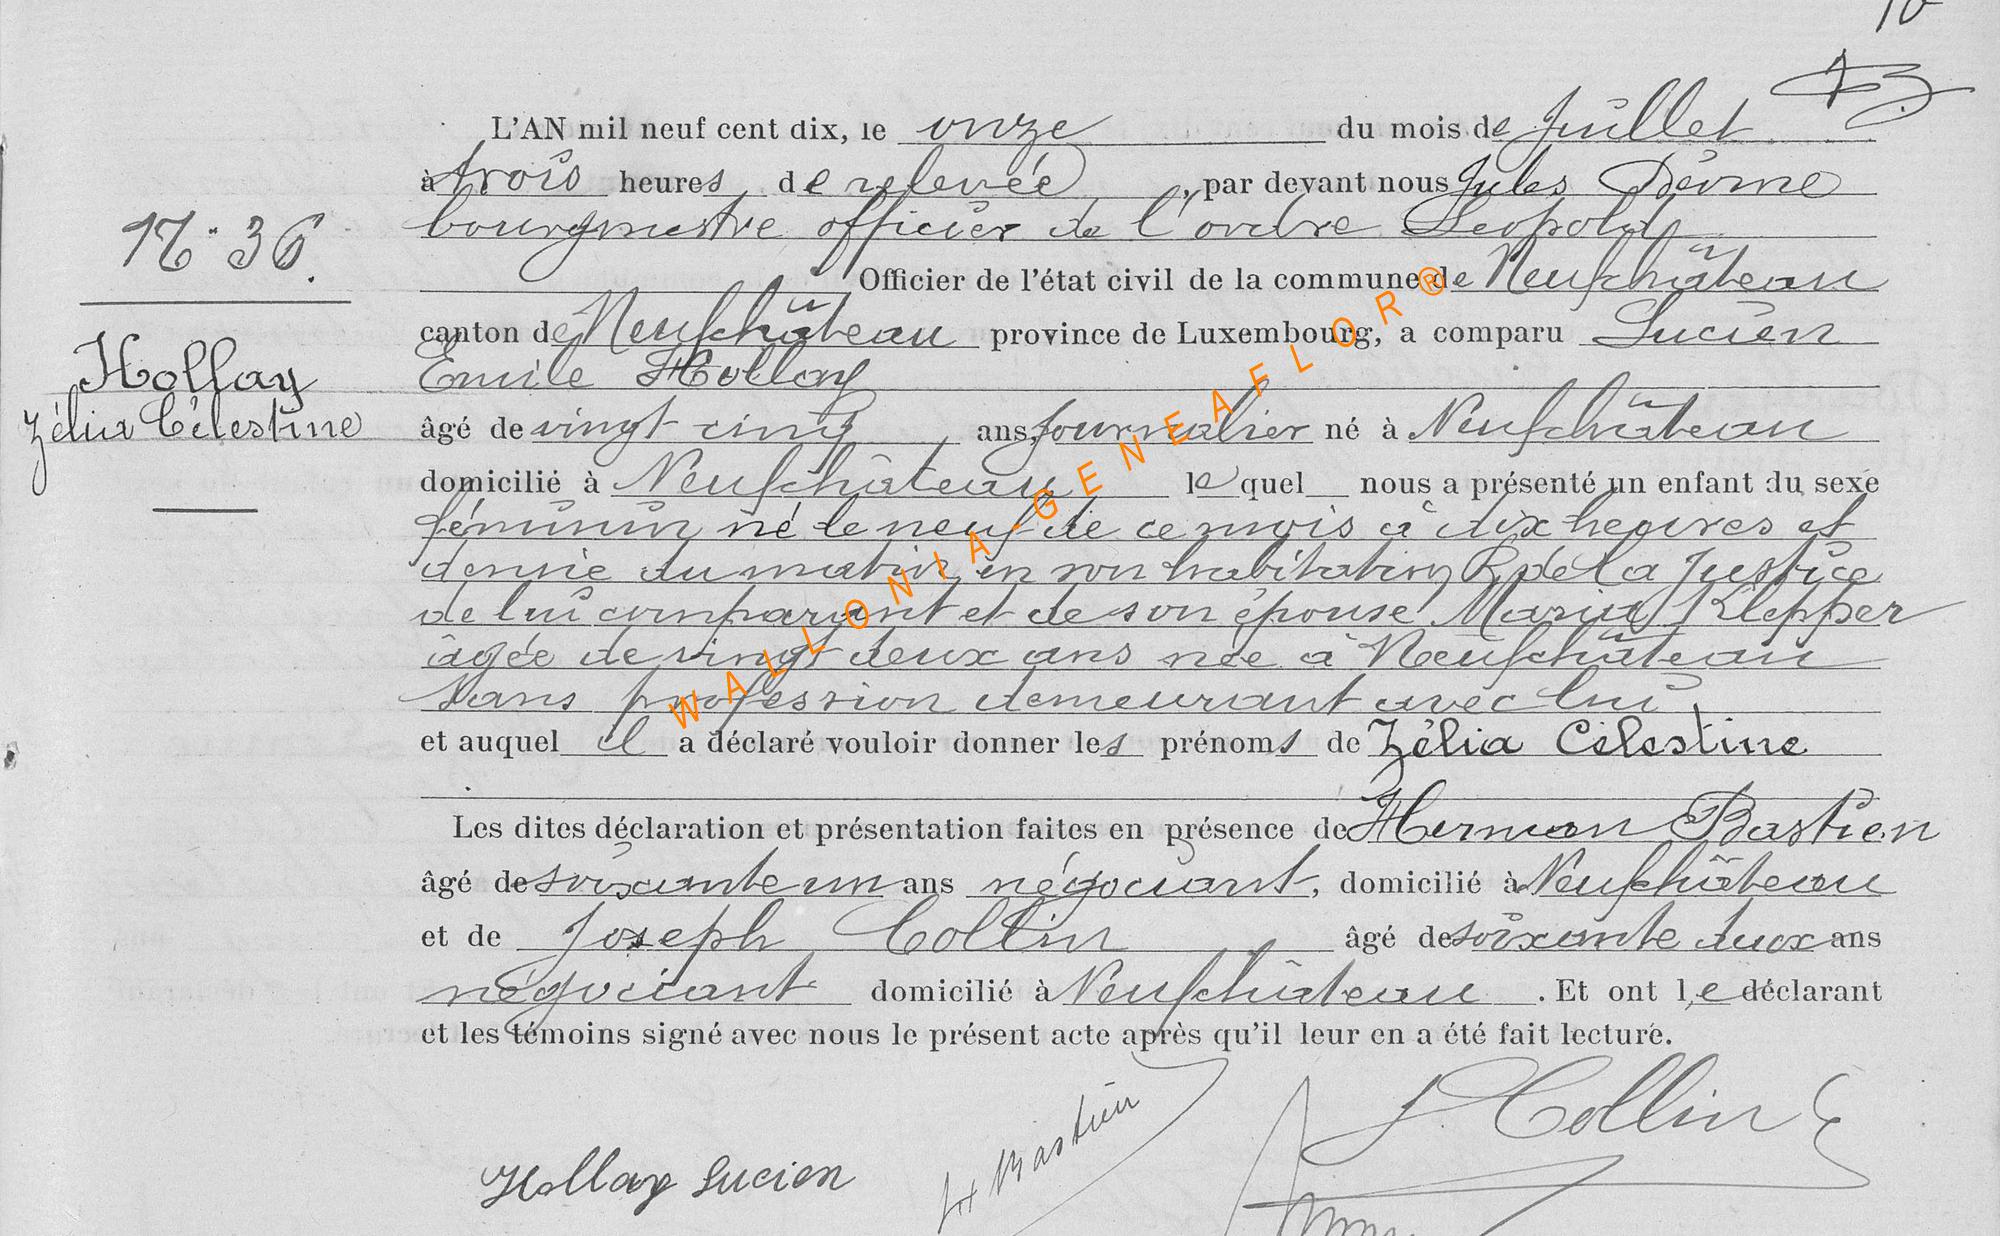 10
L'AN mil neuf cent dix, le onze du mois de Juillet
à trois heures de relevée, par devant nous Jules
bourgmestre officier de l'ordre Leopold
Officier de l'état civil de la commune de Neufchâteau
N° 36.
canton de Neufchâteau province de Luxembourg, a comparu Lucien
Hollay
Emile Hollay
Zélia Célestine
âgé de vingt cinq ans, journalier né à Neufchâteau
domicilié à Neufchâteau lequel nous a présenté un enfant du sexe
féminin né le neuf de ce mois à dix heures et
demie du matin en son habitation R. de la Justice
de lui comparant et de son épouse Maria Klepper
âgée de vingt deux ans née à Neufchâteau
sans profession demeurant avec lui
et auquel il a déclaré vouloir donner les prénoms de Zélia Célestine
Les dites déclaration et présentation faites en présence de Herman Bastien
âgé de soixante un ans négociant, domicilié à Neufchâteau
et de Joseph Collin âgé de soixante deux ans
négociant domicilié à Neufchâteau. Et ont le déclarant
et les témoins signé avec nous le présent acte après qu'il leur en a été fait lecture.
Hollay Lucien
H Bastien
J. Collin
WALLONIA-GENEAFLOR®